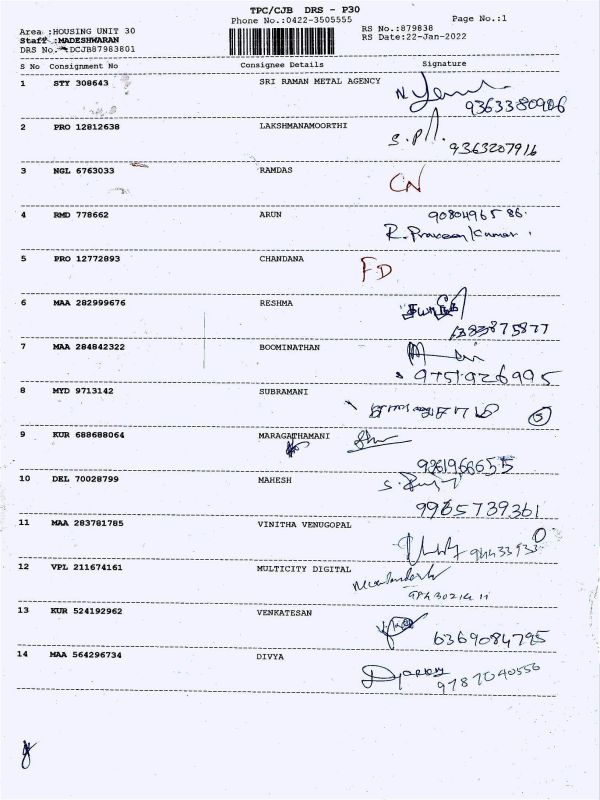 TPC/CJB DRS - P30
Phone No.:0422-3505555
Page No.:1
Area :HOUSING UNIT 30
RS No.:879838
Staff :MADESHWARAN
RS Date:22-Jan-2022
DRS No. :DCJB87983801
S No Consignment No Consignee Details Signature
1 STY 308643 SRI RAMAN METAL AGENCY
2 PRO 12812638 LAKSHMANAMOORTHI
S.P
9363207916
3 NGL 6763033 RAMDAS CN
4 RMD 778662 ARUN 9080496586.
R. Praveen Kumar.
5 PRO 12772893 CHANDANA FD
6 MAA 282999676 RESHMA
7 MAA 284842322 BOOMINATHAN
9751926995
8 MYD 9713142 SUBRAMANI
9 KUR 688688064 MARAGATHAMANI
10 DEL 70028799 MAHESH
9965739361
11 MAA 283781785 VINITHA VENUGOPAL
12 VPL 211674161 MULTICITY DIGITAL
13 KUR 524192962 VENKATESAN
6369084795
14 MAA 564296734 DIVYA
9787040556